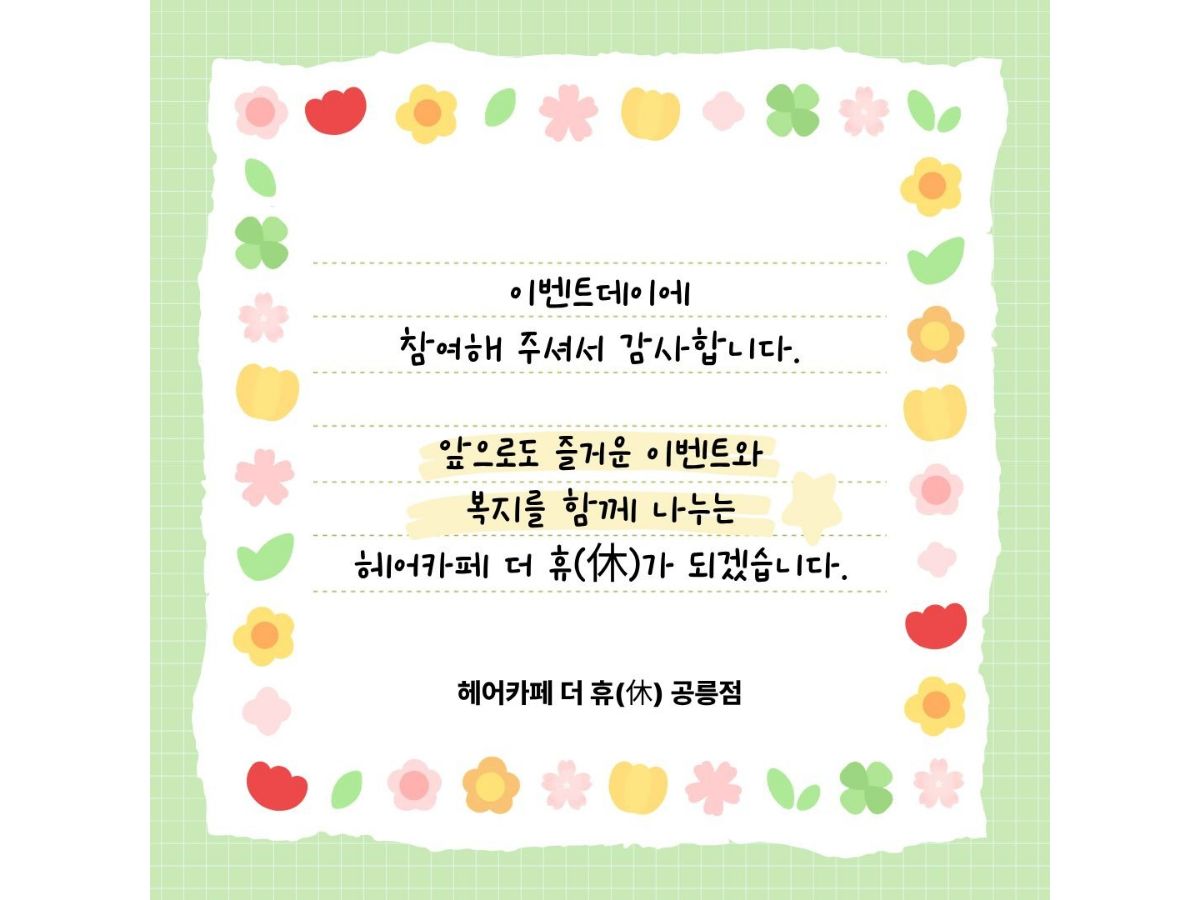 이벤트데이에
참여해 주셔서 감사합니다.
앞으로도 즐거운 이벤트와
복지를 함께 나누는
헤어카페 더 휴(休)가 되겠습니다.
헤어카페 더 휴(休) 공릉점